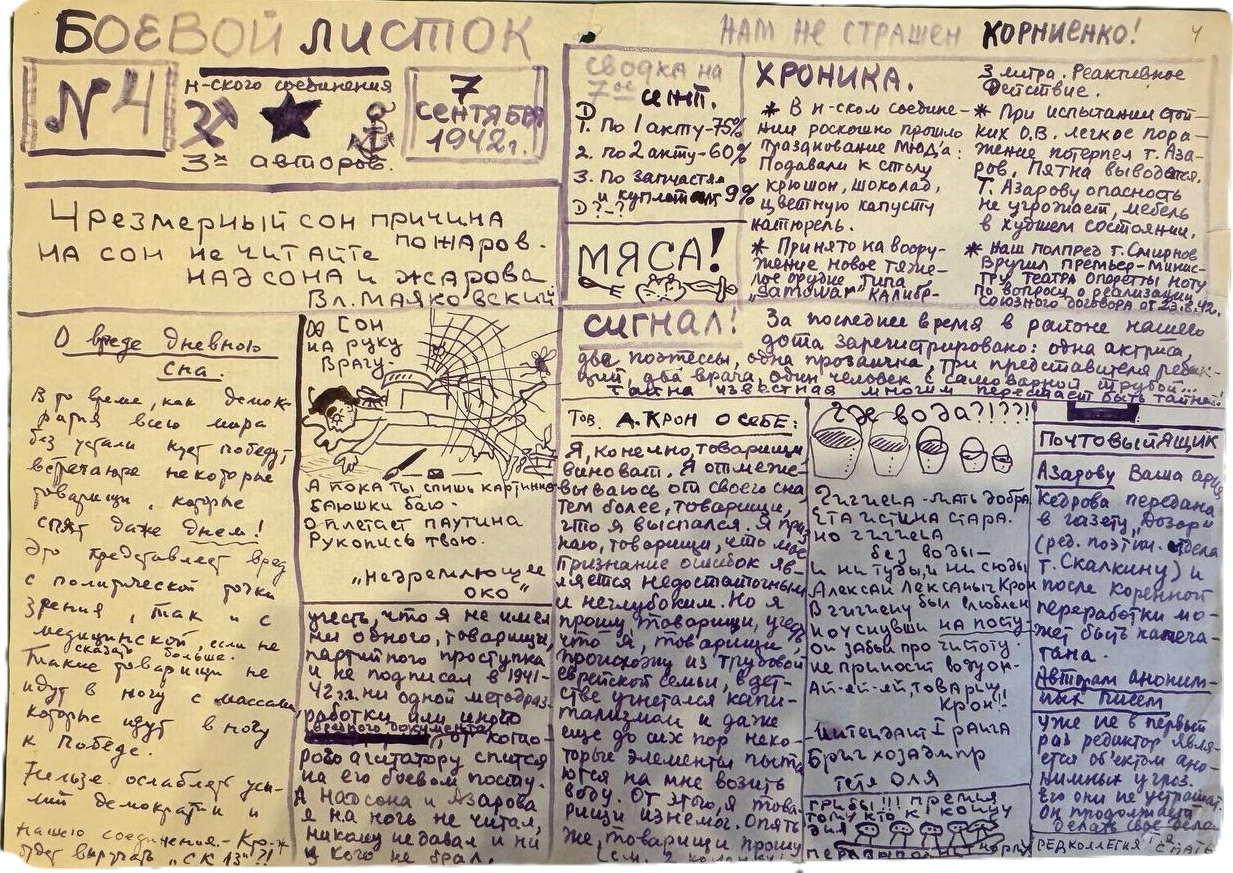 БОЕВОЙ ЛИСТОК
НАМ НЕ СТРАШЕН КОРНИЕНКО!
4
№ 4
н-ского соединения
3х авторов.
7
СЕНТЯБРЯ
1942г.
Чрезмерный сон причина
пожаров.
На сон не читайте
Надсона и Жарова
Вл. Маяковский
О вреде дневного
сна.
В то время, как демок-
ратия всего мира
без устали кует победу,
встречаются некоторые
товарищи, которые
спят даже днем!
Это представляет вред
с политической точки
зрения, так и с
медицинской, если не
сказать больше.
Такие товарищи не
идут в ногу с массами
которые идут в ногу
к победе.
Нельзя ослаблять уси-
лий демократии и
нашего соединения.
Сон
на руку
врагу.
А пока ты спишь картинно
баюшки баю.
Оплетает паутина
Рукопись твою.
„Недремлющее
око"
учесть, что я не имел
ни одного, товарищи,
партийного проступка
и не подписал в 1941-
42 г.г. ни одной методраз-
работки или иного
документа, от кото-
рого агитатору спится
на его боевом посту.
А Надсона и Азарова
я на ночь не читал,
никому не давал и ни
у кого не брал.
СВОДКА НА
7ое сент.
1. По 1 акту-75%
2. по 2 акту-60%
3. По запчастям
и куплетам 9%
?-?
МЯСА!
ХРОНИКА.
* В н-ском соедине-
нии роскошно прошло
празднование МЮД'а:
Подавали к столу
крюшон, шоколад,
цветную капусту
натюрель.
* Принято на воору-
жение новое тяже-
лое орудие типа
„Samowar" калибр-
3 литра. Реактивное
действие.
* При испытании стой-
ких О.В. легкое пора-
жение потерпел т. Аза-
ров. Пятна выводятся.
Т. Азарову опасность
не угрожает, мебель
в худшем состоянии.
* Наш полпред т. Смирнов
вручил премьер-минис-
тру театра оперетты ноту
по вопросу о реализации
союзного договора от 23.8.42.
СИГНАЛ!
За последнее время в районе нашего
дота зарегистрировано: одна актриса,
две поэтессы, одна прозаичка, три представителя редак-
ций, два врача, один человек с самоварной трубой...
Тайна известная многим перестает быть тайной!
Тов. А. Крон о себе:
Я, конечно, товарищи,
виноват. Я отмеже-
вываюсь от своего сна,
тем более, товарищи,
что я выспался. Я приз-
наю, товарищи, что мое
признание ошибок яв-
ляется недостаточным
и неглубоким. Но я
прошу, товарищи, учесть
что я, товарищи,
происхожу из трудовой
еврейской семьи, в дет-
стве угнетался капи-
тализмом и даже
еще до сих пор неко-
торые элементы пыта-
ются на мне возить
воду. От этого, я това-
рищи изнемог. Опять
же, товарищи прошу
(см. 2 колонку)
Где вода?!??!
Гигиена-мать добра
Эта истина стара.
но гигиена
без воды-
и ни туды, и ни сюды
Алексан Лександрыч Крон
В гигиену был влюблен
но уснувши на посту
Он забыл про чистоту
не приносит воду он-
Ай-яй-яй, товарищ
Крон!!
Интендант I ранга
Бригхозадмпр
тетя Оля
ГРИБЫ!!! Премия
тому кто к концу
дня
перевыполнит норму
ПОЧТОВЫЙ ЯЩИК
Азарову Ваша ария
Кедрова передана
в газету „Дозор"
(ред. поэтич. отдела
т. Скалкину) и
после коренной
переработки мо-
жет быть напеча-
тана.
Авторам аноним-
ных писем
уже не в первый
раз редактор явля-
ется объектом ано-
нимных угроз.
Его они не устрашат.
Он продолжает
делать свое дело
РЕДКОЛЛЕГИЯ